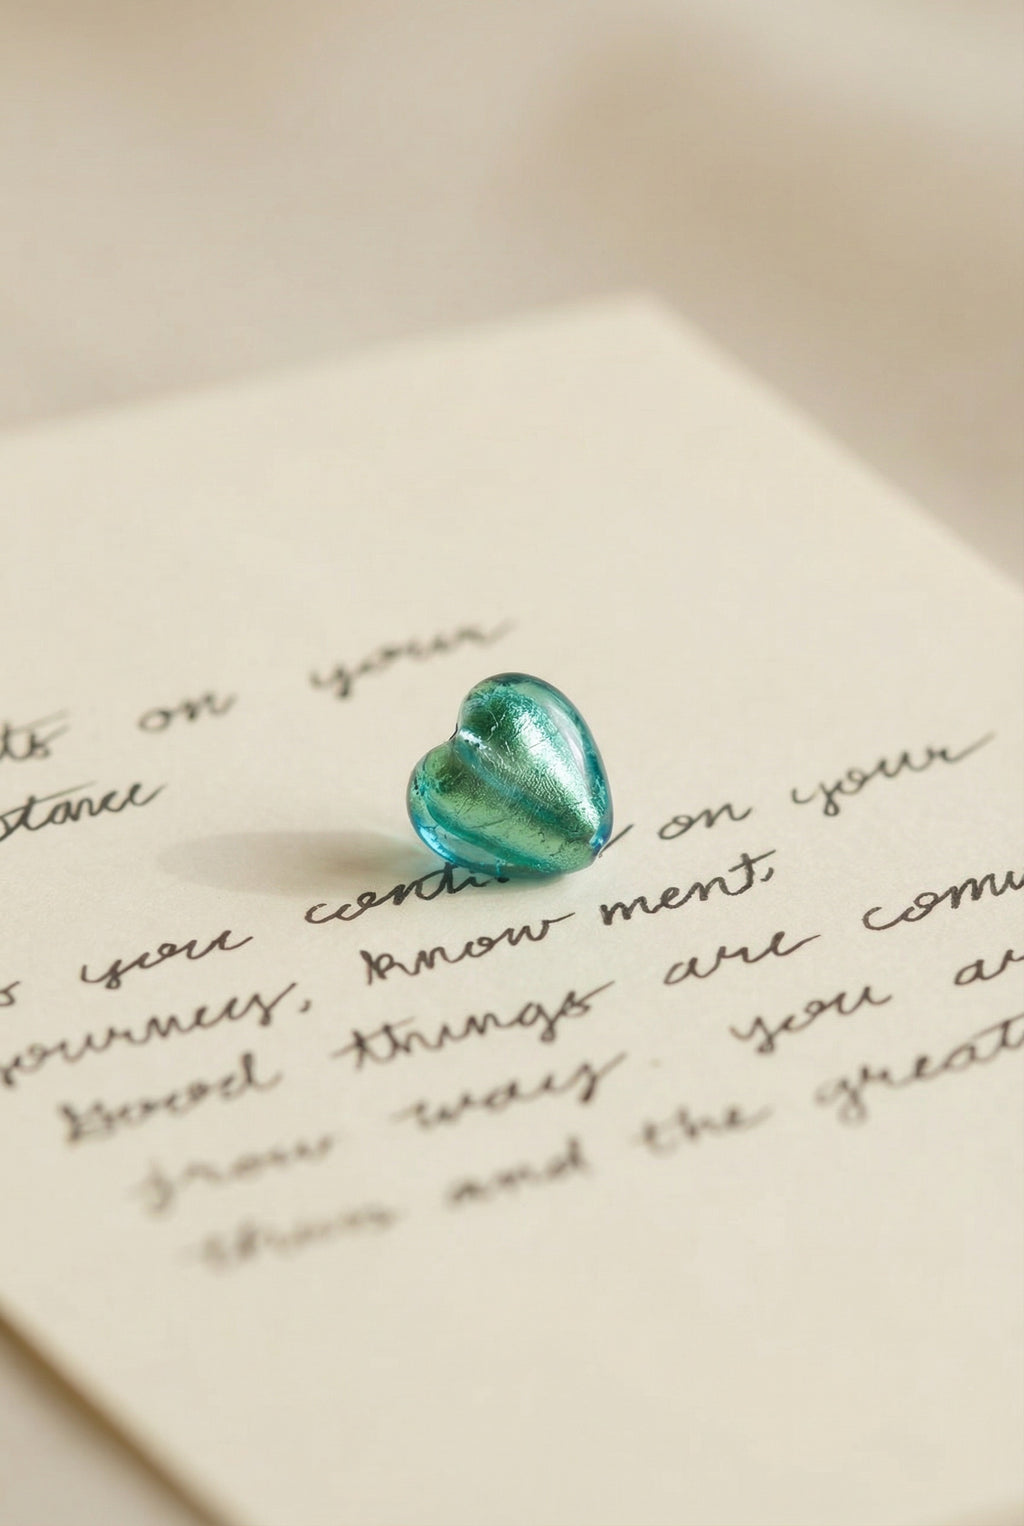 on your
stance
you conti on your
journey, know ment,
Good things are comi
from way. you ar
and the great